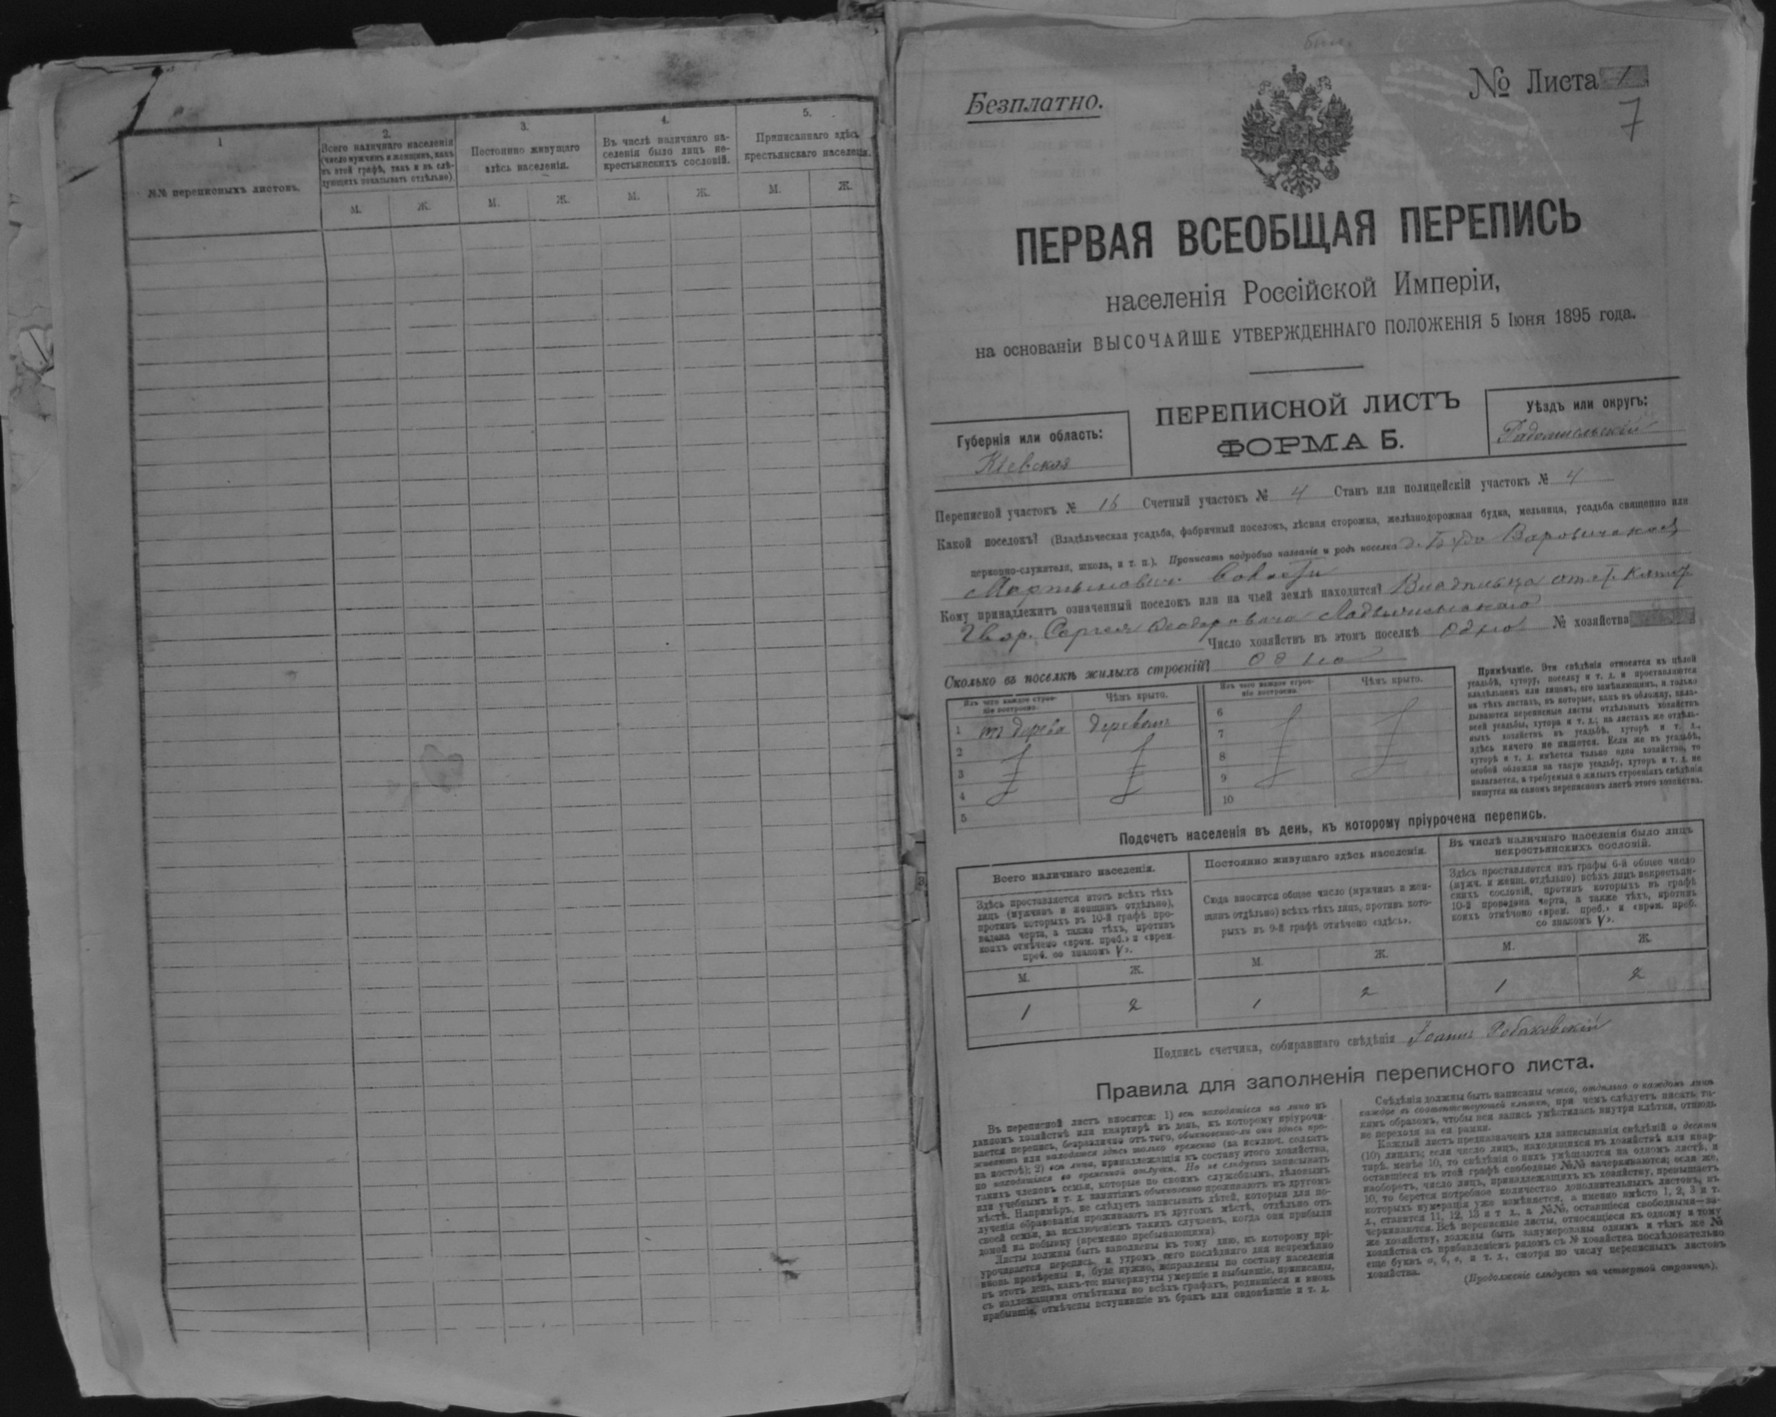 1
№№ переписныхъ листовъ.
2.
Всего наличнаго населенія
(число мужчинъ и женщинъ, какъ
въ этой графѣ, такъ и въ слѣ-
дующихъ показывать отдѣльно).
3.
Постоянно живущаго
здѣсь населенія.
4.
Въ числѣ наличнаго на-
селенія было лицъ не-
крестьянскихъ сословій.
5.
Приписаннаго здѣсь
крестьянскаго населенія.
М. Ж. М. Ж. М. Ж. М. Ж.
Безплатно.
№ Листа 1
7
ПЕРВАЯ ВСЕОБЩАЯ ПЕРЕПИСЬ
населенія Россійской Имперіи,
на основаніи ВЫСОЧАЙШЕ УТВЕРЖДЕННАГО ПОЛОЖЕНІЯ 5 Іюня 1895 года.
Губернія или область:
Кіевская
ПЕРЕПИСНОЙ ЛИСТЪ
ФОРМА Б.
Уѣздъ или округъ:
Радомысльскій
Переписной участокъ № 16 Счетный участокъ № 4 Станъ или полицейскій участокъ № 4
Какой поселокъ? (Владѣльческая усадьба, фабричный поселокъ, лѣсная сторожка, желѣзнодорожная будка, мельница, усадьба священно или
церковно-служителя, школа, и т. п.). Прописать подробно названіе и родъ поселка д. Буда Варовичская
Мартынович. волости
Кому принадлежитъ означенный поселокъ или на чьей землѣ находится? Владѣльца
Двор. Сергея Феодоровича
Число хозяйствъ въ этомъ поселкѣ одно № хозяйства
Сколько въ поселкѣ жилыхъ строеній? одно
Изъ чего каждое строе-
ніе построено. Чѣмъ крыто. Изъ чего каждое строе-
ніе построено. Чѣмъ крыто.
1 изъ дерева деревомъ 6
2 7
3 8
4 9
5 10
Примѣчаніе. Эти свѣдѣнія относятся къ цѣлой
усадьбѣ, хутору, поселку и т. д. и проставляются
владѣльцемъ или лицомъ, его замѣняющимъ, и только
на тѣхъ листахъ, въ которые, какъ въ обложку, вкла-
дываются переписные листы отдѣльныхъ хозяйствъ
всей усадьбы, хутора и т. д.; на листахъ же отдѣль-
ныхъ хозяйствъ въ усадьбѣ, хуторѣ и т. д.,
здѣсь ничего не пишется. Если же въ усадьбѣ,
хуторѣ и т. д. имѣется только одно хозяйство, то
особой обложки на такую усадьбу, хуторъ и т. д. не
полагается, а требуемыя о жилыхъ строеніяхъ свѣдѣнія
пишутся на самомъ переписномъ листѣ этого хозяйства.
Подсчетъ населенія въ день, къ которому пріурочена перепись.
Всего наличнаго населенія.
Здѣсь проставляется итогъ всѣхъ тѣхъ
лицъ (мужчинъ и женщинъ отдѣльно),
противъ которыхъ въ 10-й графѣ про-
ведена черта, а также тѣхъ, противъ
коихъ отмѣчено «врем. преб.» и «врем.
преб. со знакомъ V».
М. Ж.
1 2
Постоянно живущаго здѣсь населенія.
Сюда вносится общее число (мужчинъ и жен-
щинъ отдѣльно) всѣхъ тѣхъ лицъ, противъ кото-
рыхъ въ 9-й графѣ отмѣчено «здѣсь».
М. Ж.
1 2
Въ числѣ наличнаго населенія было лицъ
некрестьянскихъ сословій.
Здѣсь проставляется изъ графы 6-й общее число
(мужч. и женщ. отдѣльно) всѣхъ лицъ некрестьян-
скихъ сословій, противъ которыхъ въ графѣ
10-й проведена черта, а также тѣхъ, противъ
коихъ отмѣчено «врем. преб.» и «врем. преб.
со знакомъ V».
М. Ж.
1 2
Подпись счетчика, собиравшаго свѣдѣнія Іоаннъ
Правила для заполненія переписного листа.
Въ переписной листъ вносятся: 1) всѣ находящіеся на лицо въ
данномъ хозяйствѣ или квартирѣ въ день, къ которому пріурочи-
вается перепись, безразлично отъ того, обыкновенно-ли они здѣсь про-
живаютъ или находятся здѣсь только временно (за исключ. солдатъ
на постоѣ); 2) всѣ лица, принадлежащія къ составу этого хозяйства,
но находящіяся во временной отлучкѣ. Но не слѣдуетъ записывать
такихъ членовъ семьи, которые по своимъ служебнымъ, дѣловымъ
или учебнымъ и т. д. занятіямъ обыкновенно проживаютъ въ другомъ
мѣстѣ. Напримѣръ, не слѣдуетъ записывать дѣтей, которыя для по-
лученія образованія проживаютъ въ другомъ мѣстѣ, отдѣльно отъ
своей семьи, за исключеніемъ такихъ случаевъ, когда они прибыли
домой на побывку (временно пребывающихъ)
Листы должны быть заполнены къ тому дню, къ которому прі-
урочивается перепись, и утромъ сего послѣдняго дня непремѣнно
вновь провѣрены и, буде нужно, исправлены по составу населенія
въ этотъ день, какъ-то: вычеркнуты умершіе и выбывшіе, приписаны,
съ надлежащими отмѣтками во всѣхъ графахъ, родившіеся и вновь
прибывшіе, отмѣчены вступившіе въ бракъ или овдовѣвшіе и т. д.
Свѣдѣнія должны быть написаны четко, отдѣльно о каждомъ лицѣ
каждое въ соотвѣтствующей клѣткѣ, при чемъ слѣдуетъ писать та-
кимъ образомъ, чтобы вся запись умѣстилась внутри клѣтки, отнюдь
не переходя за ея рамки.
Каждый листъ предназначенъ для записыванія свѣдѣній о десяти
(10) лицахъ; если число лицъ, находящихся въ хозяйствѣ или квар-
тирѣ, менѣе 10, то свѣдѣнія о нихъ умѣщаются на одномъ листѣ, и
оставшіеся въ этой графѣ свободные №№ зачеркиваются; если же,
наоборотъ, число лицъ, принадлежащихъ къ хозяйству, превышаетъ
10, то берется потребное количество дополнительныхъ листовъ, въ
которыхъ нумерація уже измѣняется, а именно вмѣсто 1, 2, 3 и т.
д., ставится 11, 12, 13 и т. д., а №№, оставшіеся свободными—за-
черкиваются. Всѣ переписные листы, относящіеся къ одному и тому
же хозяйству, должны быть занумерованы однимъ и тѣмъ же №
хозяйства съ прибавленіемъ рядомъ съ № хозяйства послѣдовательно
еще буквъ а, б, в, и т. д., смотря по числу переписныхъ листовъ
хозяйства.
(Продолженіе слѣдуетъ на четвертой страницѣ).